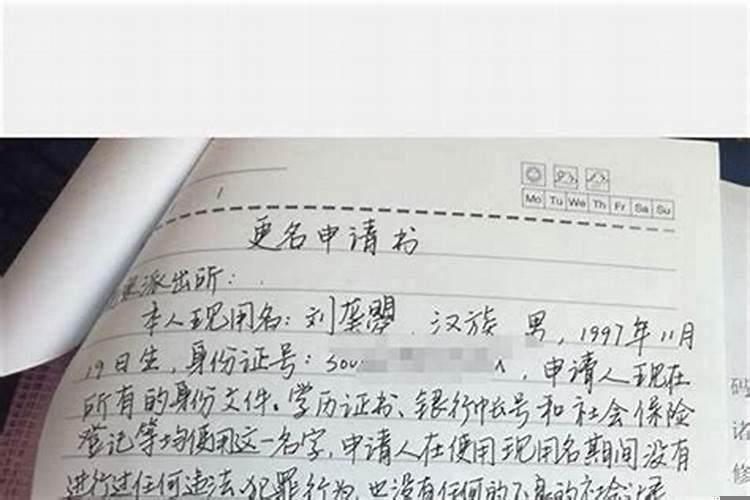 Mo Tu We Th Fr Sa Su
更名申请书
派出所:
本人现用名:刘 , 汉族 男, 1997年11月
19日生, 身份证号: , 申请人现在
所有的身份文件、学历证书、银行帐号和社会保险
登记等均使用这一名字, 申请人在使用现用名期间没有
进行过任何违法、犯罪行为, 也没有任何的不良的社会
码
诸
修